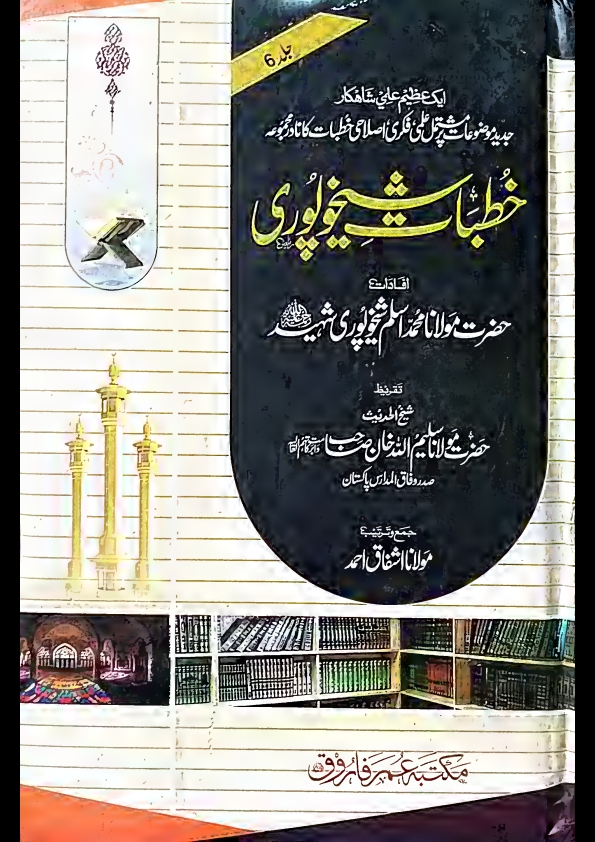 جلد 6
ایک عظیم علمی شاہکار
جدید موضوعات پر مشتمل علمی فکری، اصلاحی خطبات کا نادر مجموعہ
خطباتِ شیخوپوری
افادات
حضرت مولانا محمد اسلم شیخوپوری شہید
تقریظ
شیخ الحدیث
حضرت مولانا سلیم اللہ خان صاحب دامت برکاتہم العالیہ
صدر وفاق المدارس پاکستان
جمع و ترتیب
مولانا اشفاق احمد
مکتبہ عمر فاروق